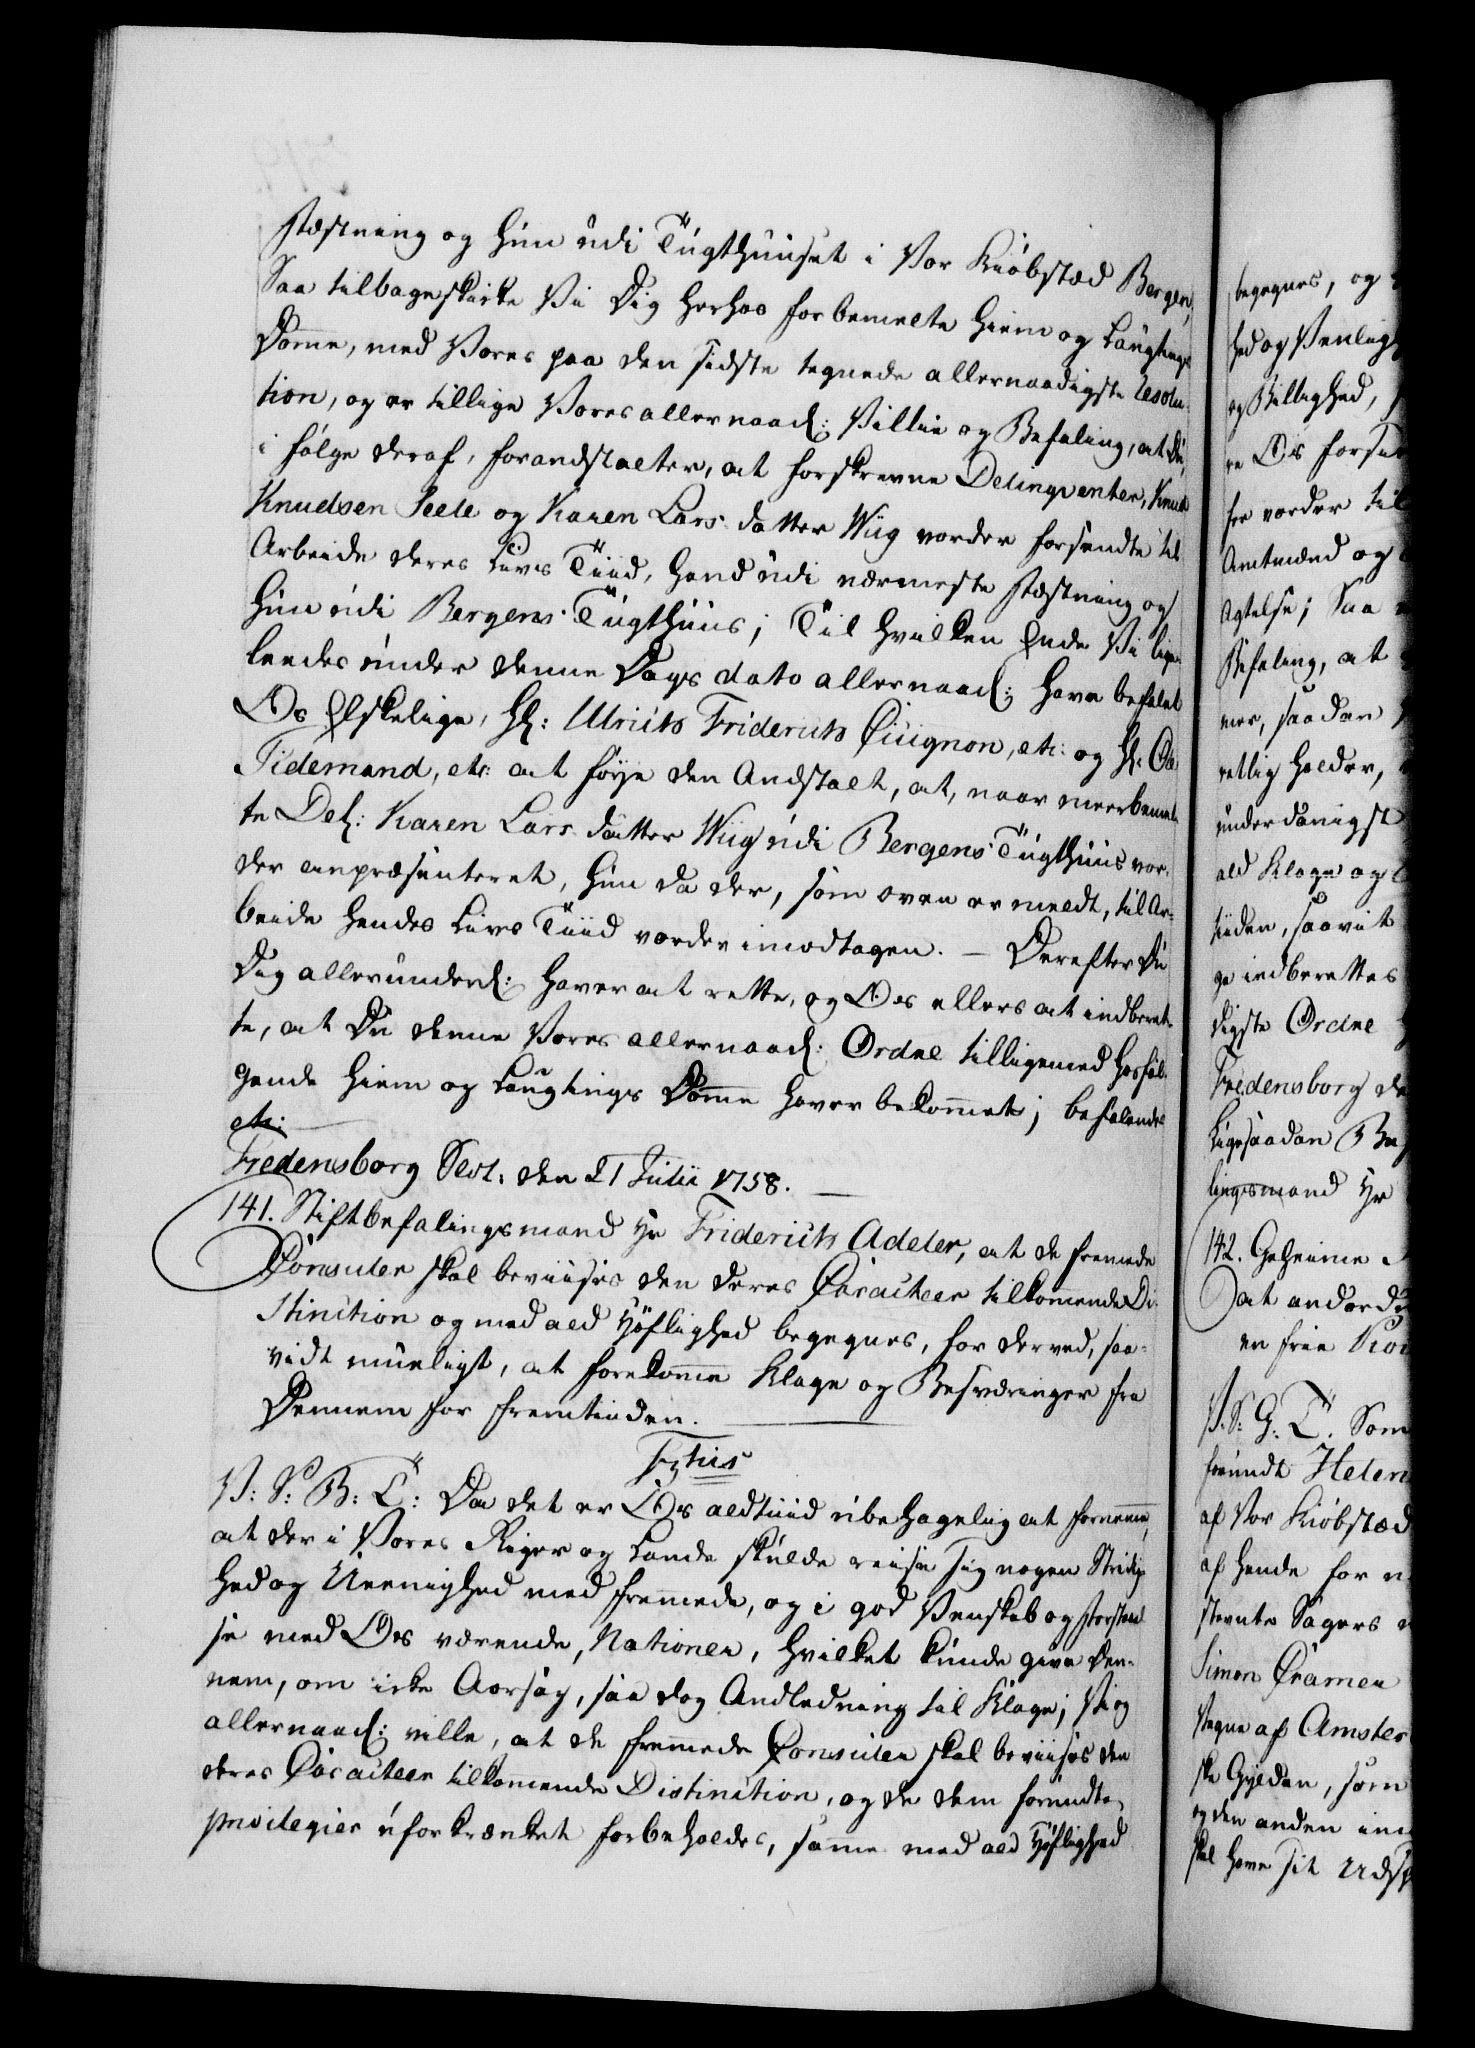 Fæstning og hun udi Tugthuuset i Vor Kiöbstæd Bergen,
Saa tilbageskikke Vi Dig herhos forbemelte Hiem og Laugtings
Domme, med Vores paa den sidste tegnede allernaadigste Resolu-
tion, og er tillige Vores allernaad: Villie og Befaling, at Du,
i følge deraf, forandstalter, at forskrevne Delinqventer, Knud
Knudsen Seele og Karen Lars datter Wiig vorder forsendte til
Arbeide deres Livs Tiid, hand udi nærmeste Fæstning og
hun udi Bergens Tugthuus; Til hvilken Ende Vi lige-
leedes under denne Dags dato allernaad: have befalet
Os Elskelige, Hr: Ulrich Friderich Cicignon, etc: og Hr: Ole
Tidemand, etc: at føye den Anstalt, at, naar meerbemel-
te Del: Karen Lars datter Wiig udi Bergens Tugthuus vor-
der anpræsenteret, hun da der, som oven er meldt, til Ar-
beide hendes Livs Tiid vorder imodtagen. – Derefter Du
Dig allerunderd: haver at rette, og Os ellers at indberet-
te, at Du denne Vores allernaad: Ordre tilligemed hosføl-
gende Hiem og Laugtings Domme haver bekommet; befalendes
etc:
Fredensborg Slot: den 21 Julii 1758.
141. Stiftbefalingsmand Hr Friderich Adeler, at de fremede
Consuler skal beviises den deres Caracteer tilkomende Di-
stinction og med ald Höflighed begegnes, for derved, saa-
vidt mueligt, at forekomme Klage og Besværinger fra
Dennem for fremtiden.
F5tus
V: S: B: T: Da det er Os aldtiid ubehagelig at fornemme,
at der i Vores Riger og Lande skulde reise sig nogen Stridig-
hed og Ueenighed med fremmede, og i god Venskab og Forstaael-
se med Os værende, Nationer, hvilket kunde give Den-
nem, om icke Aarsag, saa dog Andledning til Klage; Vi og
allernaad: ville, at de fremmede Consuler skal beviises den
deres Caracteer tilkomende Distinction, og de dem forundte
privilegier uforkrænket forbeholdes, samme med ald Höflighed
begegnes, og
hed og Venligh
og Billighed,
re Os forsee
see vorder til
Amtmænd og
Agtelse; Saa
Befaling, at
mer, saadan
retlig holder,
underdanigst
ald Klage og
tiiden, saavit
ge indberettes
digste Ordre
Fredensborg de
Ligesaadan Be
lingsmand Hr
142. Geheime
at anordn
en frie
V. S: G: T. Som
forundt Helen
af Vor Kiöbstæd
af hende for
stevnte Sagers
Simon Cramer
Vegne af Amster
ske Gylden, som
og den anden
skal have sit Uds